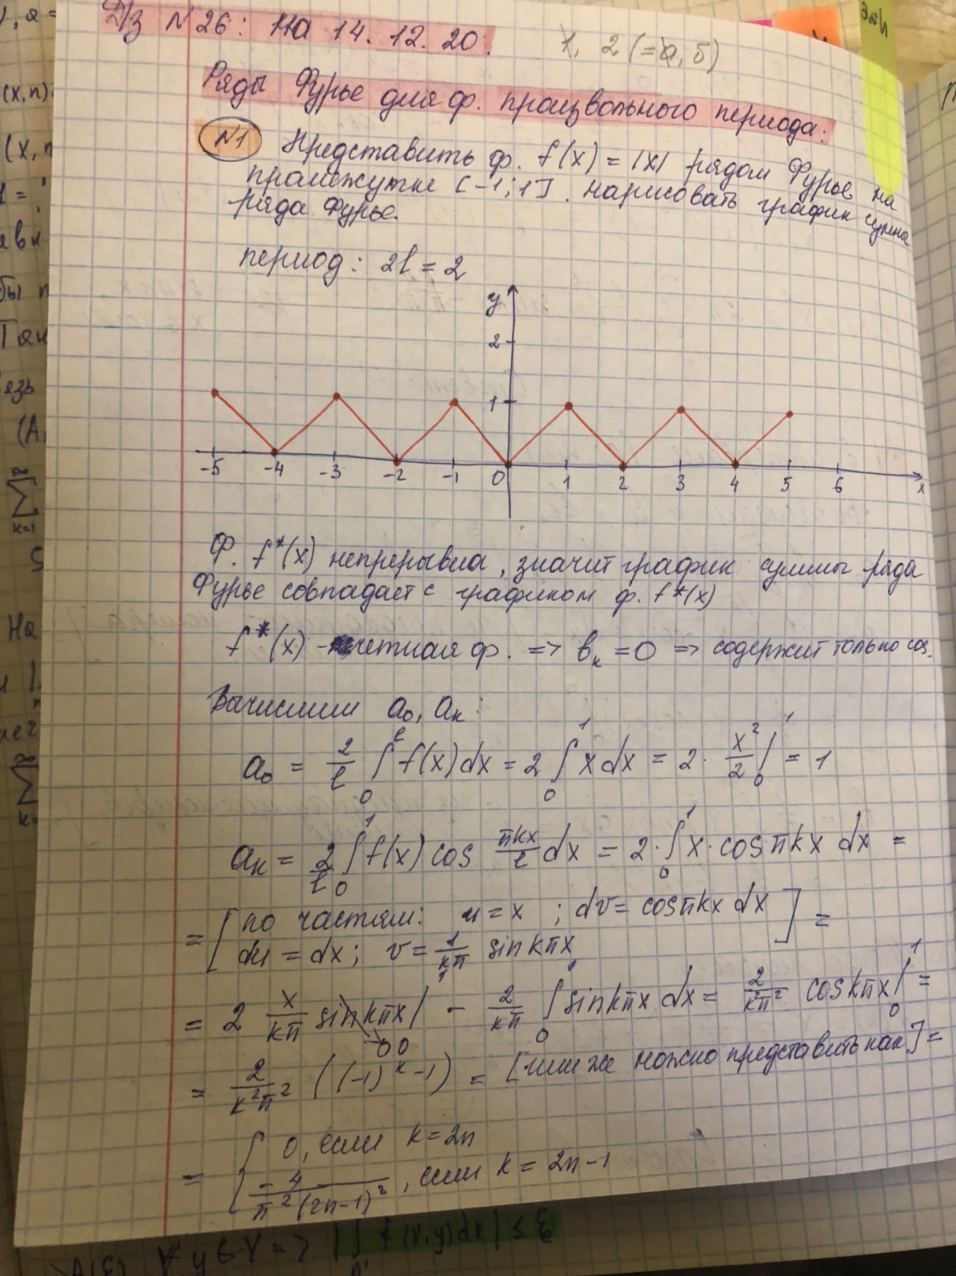 Д/з №26: На 14.12.20.
1, 2(=а,б)
Ряды Фурье для ф. произвольного периода:
№1 Представить ф. f(x) = |x| рядом Фурье на
промежутке [-1; 1]. нарисовать график суммы
ряда Фурье.
период: 2l = 2
y
2
1
-5 -4 -3 -2 -1 0 1 2 3 4 5 6 x
Ф. f*(x) непрерывна, значит график суммы ряда
Фурье совпадает с графиком ф. f*(x)
f*(x) - четная ф. => b_k = 0 => содержит только cos.
Вычислим a₀, a_k:
a₀ = 2/l ∫₀^l f(x)dx = 2 ∫₀^1 x dx = 2 · x²/2 |₀^1 = 1
a_k = 2/l ∫₀^1 f(x) cos πkx/l dx = 2 · ∫₀^1 x · cos πkx dx =
= [по частям: u = x ; dv = cos πkx dx
du = dx; v = 1/kπ sin kπx ] =
= 2 x/kπ sin kπx |₀^1 →0 - 2/kπ ∫₀^1 sin kπx dx = 2/k²π² cos kπx |₀^1 =
= 2/k²π² ((-1)^k - 1) = [или же можно представить как] =
= { 0, если k = 2n
-4/π²(2n-1)², если k = 2n-1